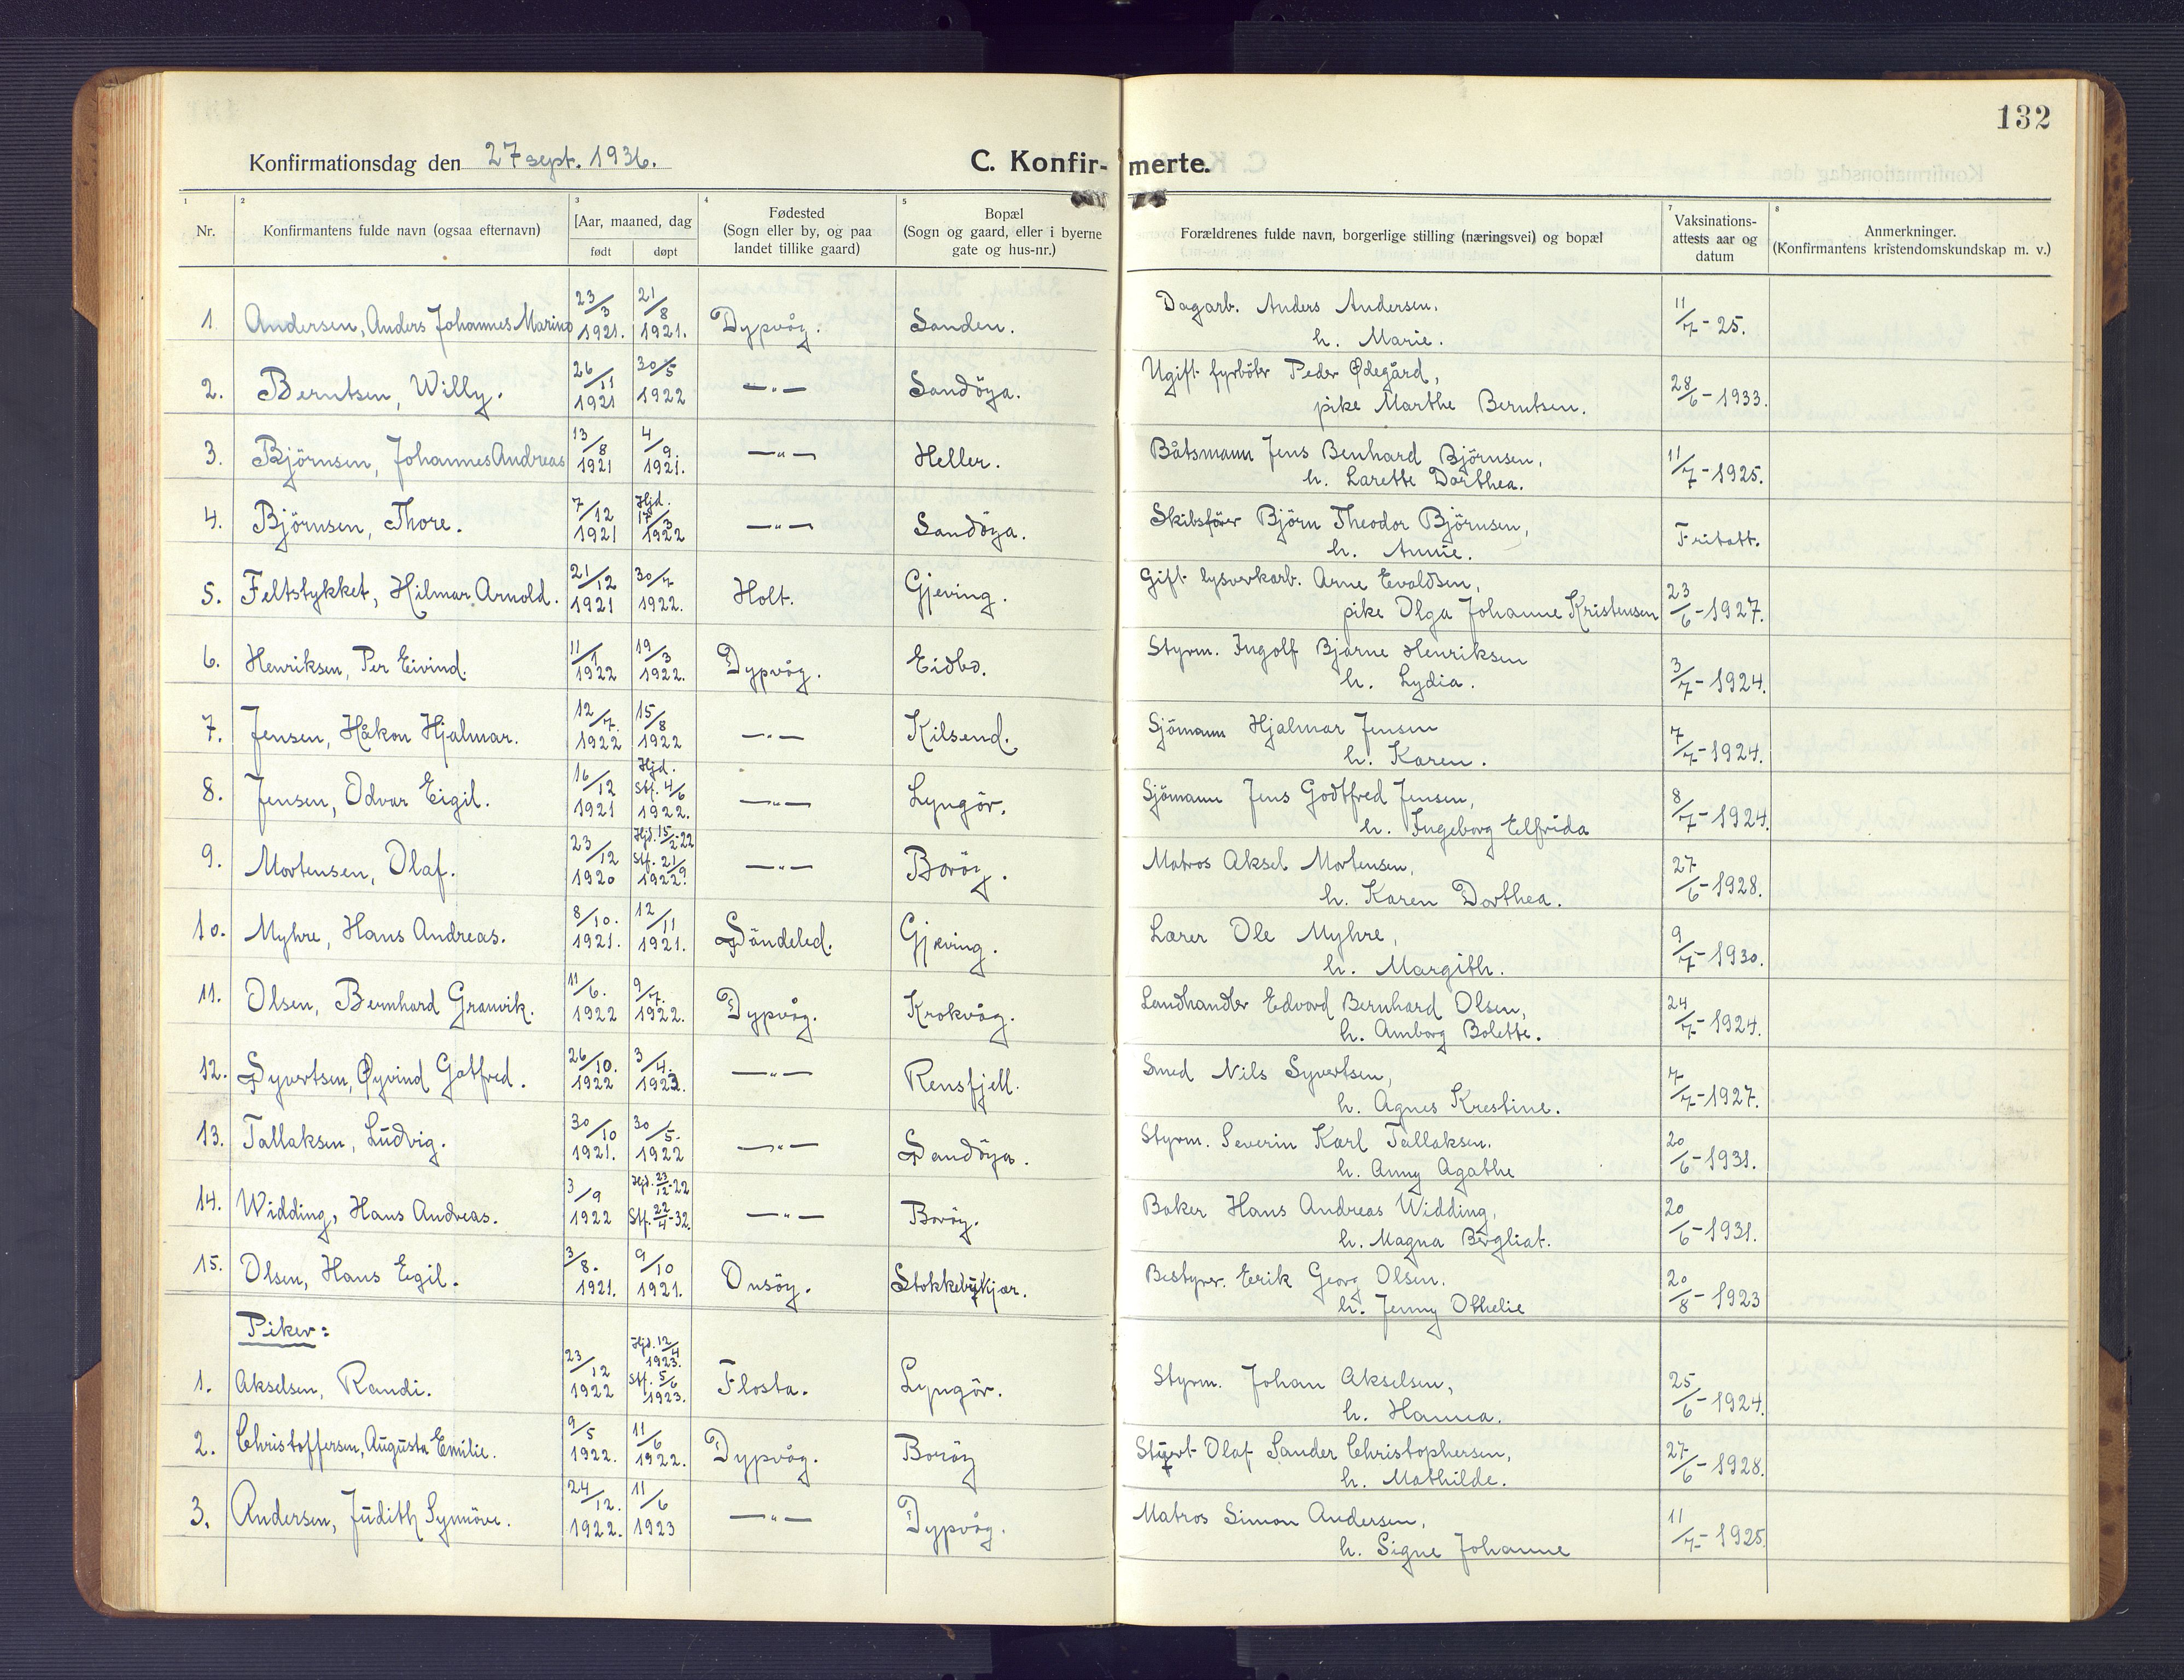 132
Konfirmationsdag den 27 sept. 1936.
C. Konfirmerte.
1 2 3 4 5 7 8
Nr.
Konfirmantens fulde navn (ogsaa efternavn)
[Aar, maaned, dag
født døpt
Fødested
(Sogn eller by, og paa
landet tillike gaard)
Bopæl
(Sogn og gaard, eller i byerne
gate og hus-nr.)
Forældrenes fulde navn, borgerlige stilling (næringsvei) og bopæl
Vaksinations-
attests aar og
datum
Anmerkninger.
(Konfirmantens kristendomskundskap m. v.)
1. Andersen, Anders Johannes Marino 23/3 1921. 21/8 1921. Dypvåg. Sanden. Dagarb. Anders Andersen, 11/7-25.
h. Marie.
2. Berntsen, Willy. 26/11 1921 30/5 1922 —"— Sandöya. Ugift fyrböter Peder Ødegård, 28/6-1933.
pike Marthe Berntsen.
3. Björnsen, Johannes Andreas 13/8 1921 4/9. 1921. —"— Heller. Båtsmann Jens Benhard Björnsen, 11/7-1925.
h. Larette Dorthea.
4. Björnsen, Thore. 7/12 1921 Hjd. 17/3 1922 —"— Sandöya. Skibsförer Björn Theodor Björnsen, Fritatt.
h. Annie.
5. Feltstykket, Hilmar Arnold. 21/12 1921 30/7 1922. Holt. Gjeving. Gift lysverkarb. Arne Evaldsen, 23/6-1927.
pike Olga Johanne Kristensen
6. Henriksen, Per Eivind. 11/1 1922 19/3 1922. Dypvåg. Eidbo. Styrm. Ingolf Bjarne Henriksen 3/7-1924.
h. Lydia.
7. Jensen, Håkon Hjalmar. 12/7. 1922 15/8 1922 —"— Kilsend. Sjömann Hjalmar Jensen 7/7-1924.
h. Karen.
8. Jensen, Odvar Eigil. 16/12 1921 Hjd. Stf. 4/6 1922. —"— Lyngör. Sjömann Jens Godtfred Jensen, 8/7-1924.
h. Ingeborg Elfrida
9. Mortensen, Olaf. 23/12 1920 Hjd. 15/2-22 Stf. 21/9 1922. —"— Boröy. Matros Aksel Mortensen, 27/6-1928.
h. Karen Dorthea.
10. Myhre, Hans Andreas. 8/10. 1921. 12/11 1921. Söndeled. Gjeving. Lærer Ole Myhre, 9/7-1930.
h. Margith.
11. Olsen, Bernhard Granvik. 11/6. 1922 9/7. 1922. Dypvåg. Krokvåg. Landhandler Edvard Bernhard Olsen, 24/7-1924.
h. Amborg Bolette.
12. Syvertsen, Øyvind Gotfred. 26/10. 1922 3/4. 1923. —"— Rensfjell. Smed Nils Syvertsen, 7/7-1927.
h. Agnes Krestine.
13. Tallaksen, Ludvig. 30/10 1921. 30/5. 1922 —"— Sandöya. Styrm. Severin Karl Tallaksen. 20/6-1931.
h. Anny Agathe
14. Widding, Hans Andreas. 3/9 1922 Hjd. 23/12-22 Stf. 22/4-32. —"— Boröy. Baker Hans Andreas Widding, 20/6-1931.
h. Magna Bergliot.
15. Olsen, Hans Egil. 3/8. 1921. 9/10 1921. Onsöy. Stokkebykjær. Bestyrer. Erik Georg Olsen. 20/8-1923
h. Jenny Othelie
Piker:
1. Akselsen, Randi. 23/12 1922 Hjd. 12/4 1923. Stf. 5/6 1923. Flosta. Lyngör. Styrm. Johan Akselsen, 25/6-1924.
h. Hanna.
2. Christoffersen, Augusta Emilie. 9/5 1922. 11/6 1922. Dypvåg. Boröy Stuert Olaf Sander Christophersen, 27/6-1928.
h. Mathilde.
3. Andersen, Judith Synnöve. 24/12. 1922. 11/6 1923 —"— Dypvåg. Matros Simon Andersen, 11/7-1925.
h. Signe Johanne